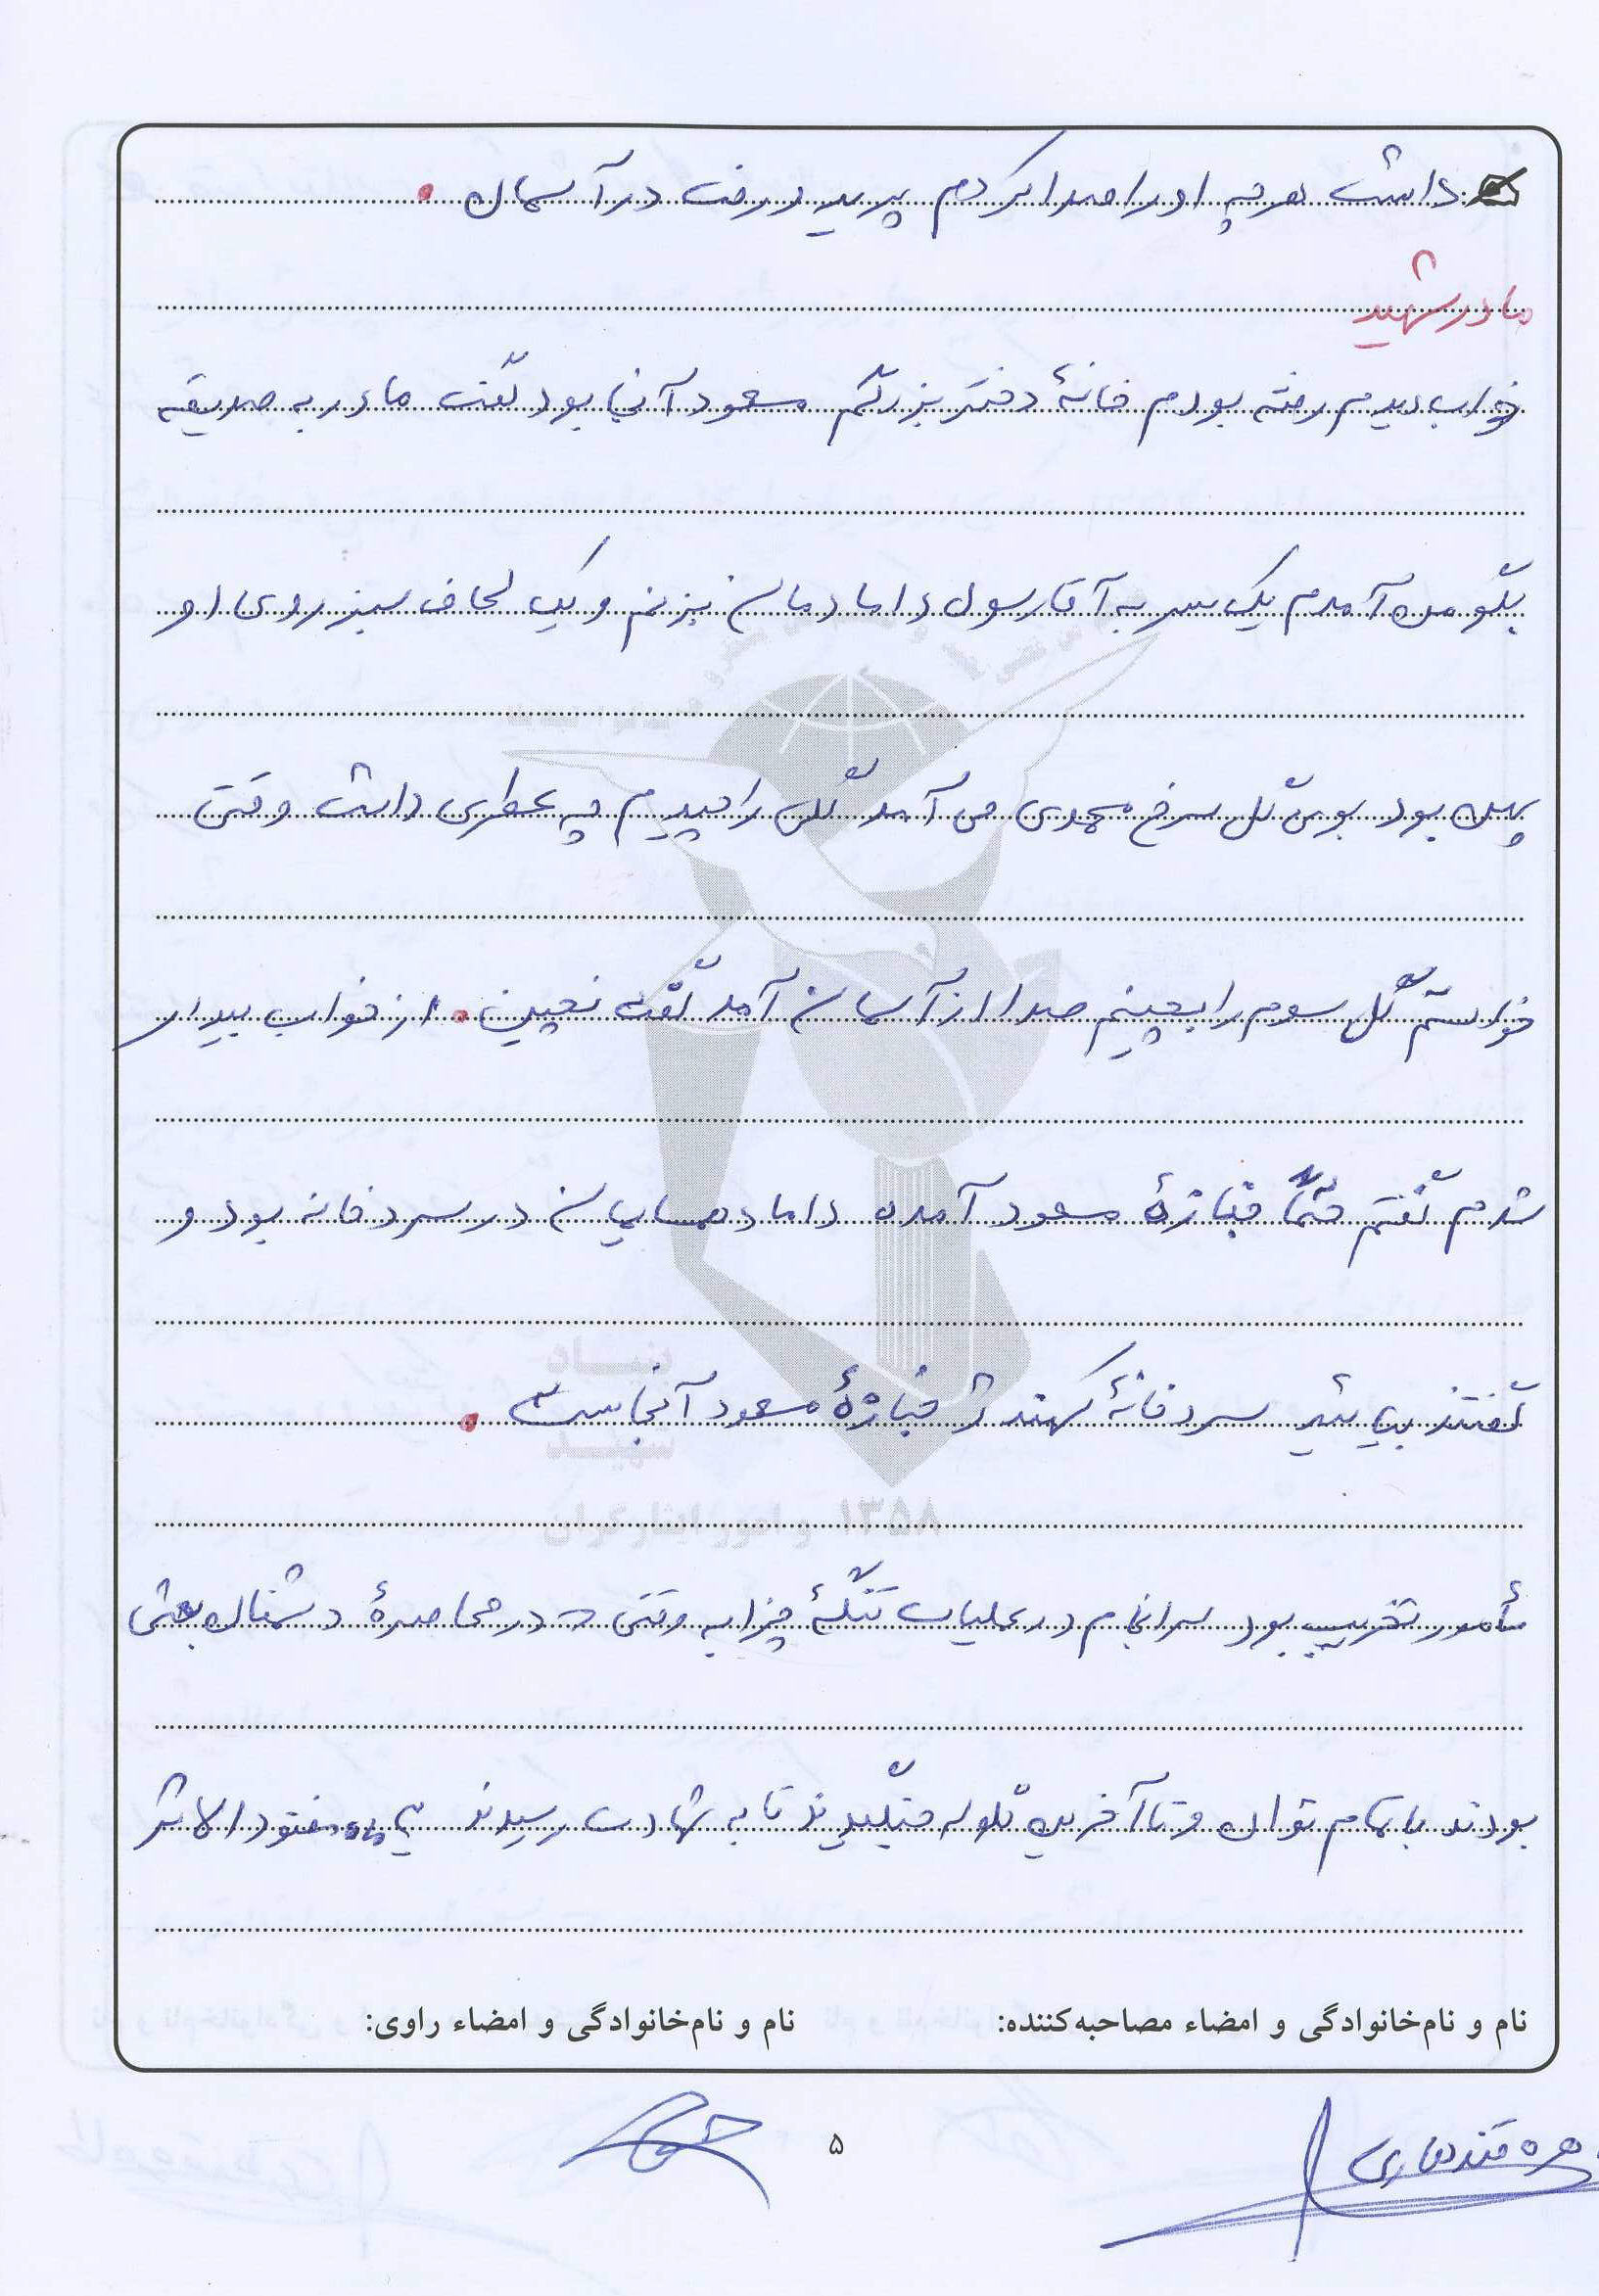 داشت هرچه او را صدا کردم پرید و رفت در آسمان.
مادر شهید
خواب دیدم رفته بودم خانهٔ دختر بزرگم مسعود آنجا بود گفت مادر به صدیقه
بگو من آمدم یک سر به آقا رسول دامادمان بزنم و یک لحاف سبز روی او
پهن بود بوی گل سرخ محمدی می آمد گلی را چیدم چه عطری داشت وقتی
خواستم گل سوم را بچینم صدا از آسمان آمد گفت نچین. از خواب بیدار
شدم گفتم حتماً جنازهٔ مسعود آمده داماد همسایمان در سردخانه بود و
گفتند بیائید سردخانهٔ کهندژ جنازهٔ مسعود آنجاست.
مأمور تخریب بود سرانجام در عملیات تنگهٔ چزابه وقتی در محاصرهٔ دشمنان بعثی
بودند با تمام توان و تا آخرین گلوله جنگیدند تا به شهادت رسیدند ماه مفقودالاثر
نام و نام‌خانوادگی و امضاء مصاحبه‌کننده: نام و نام‌خانوادگی و امضاء راوی:
قندهاری
۵
بنیاد
شهید
و امور ایثارگران ۱۳۵۸